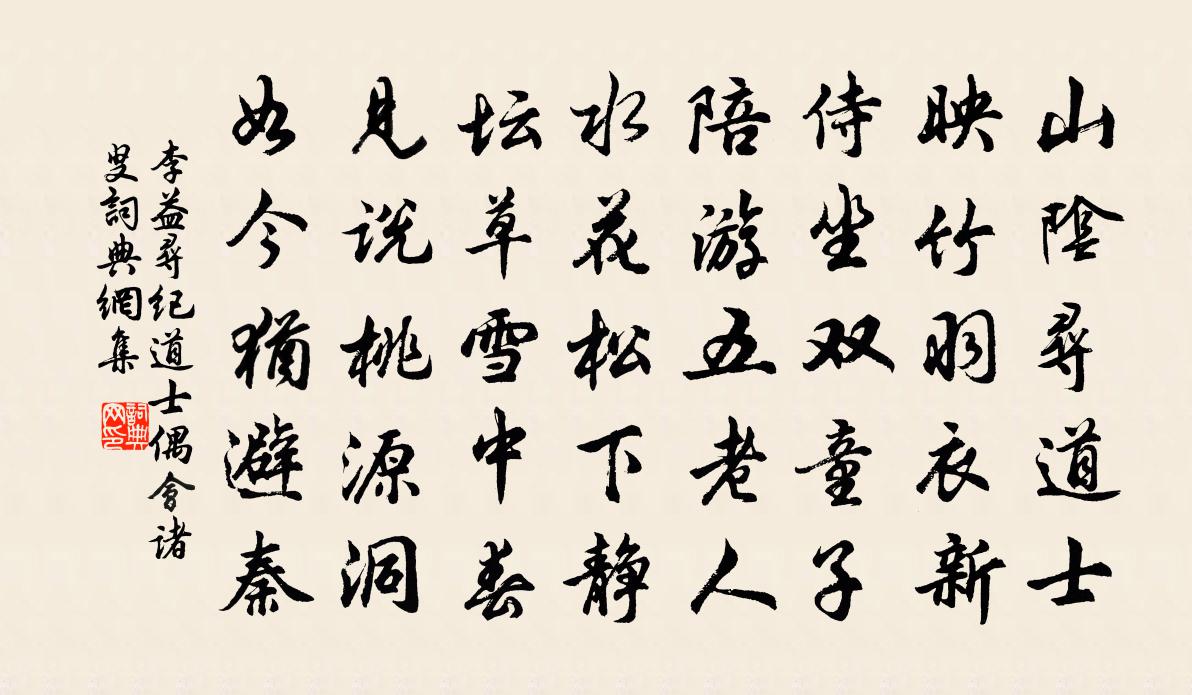 山陰尋道士
映竹羽衣新
侍坐双童子
陪游五老人
水花松下静
坛草雪中春
見说桃源洞
如今猶避秦
李益尋纪道士偶會诸
叟詞典網集
詞典网印